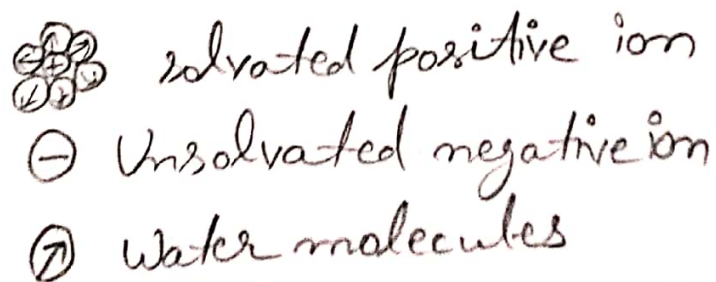 solvated positive ion
Unsolvated negative ion
Water molecules